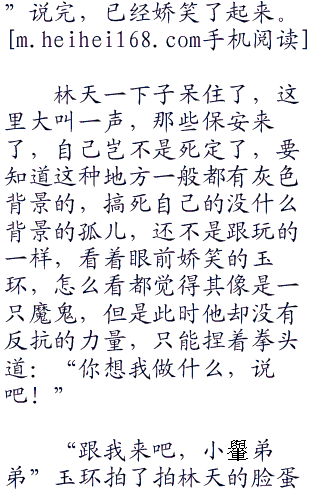 ”说完，已经娇笑了起来。
[m.heihei168.com手机阅读]
林天一下子呆住了，这
里大叫一声，那些保安来
了，自己岂不是死定了，要
知道这种地方一般都有灰色
背景的，搞死自己的没什么
背景的孤儿，还不是跟玩的
一样，看着眼前娇笑的玉
环，怎么看都觉得其像是一
只魔鬼，但是此时他却没有
反抗的力量，只能捏着拳头
道：“你想我做什么，说
吧！”
“跟我来吧，小弟
弟”玉环拍了拍林天的脸蛋